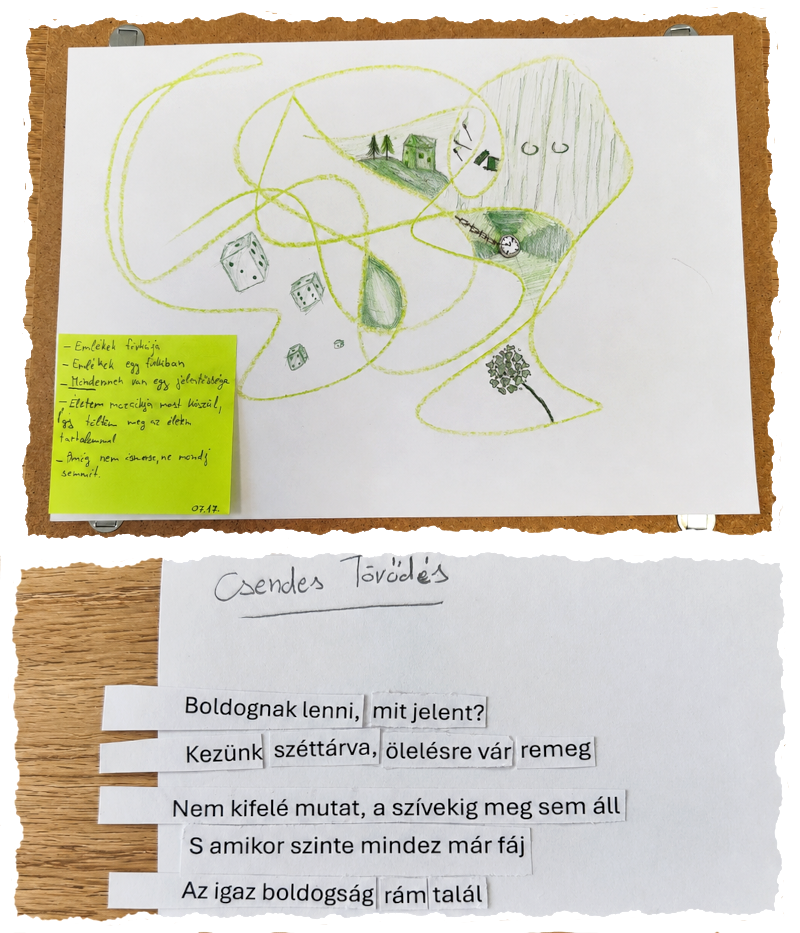 - Emlékek firkája
- Emlékek egy fiókban
- Mindennek van egy jelentőssége
- Életem mozaikja most készül,
Így töltöm meg az életem
tartalommal
- Amíg nem ismersz, ne mondj
semmit.
07.17.
Csendes Törődés
Boldognak lenni, mit jelent?
Kezünk széttárva, ölelésre vár remeg
Nem kifelé mutat, a szívekig meg sem áll
S amikor szinte mindez már fáj
Az igaz boldogság rám talál